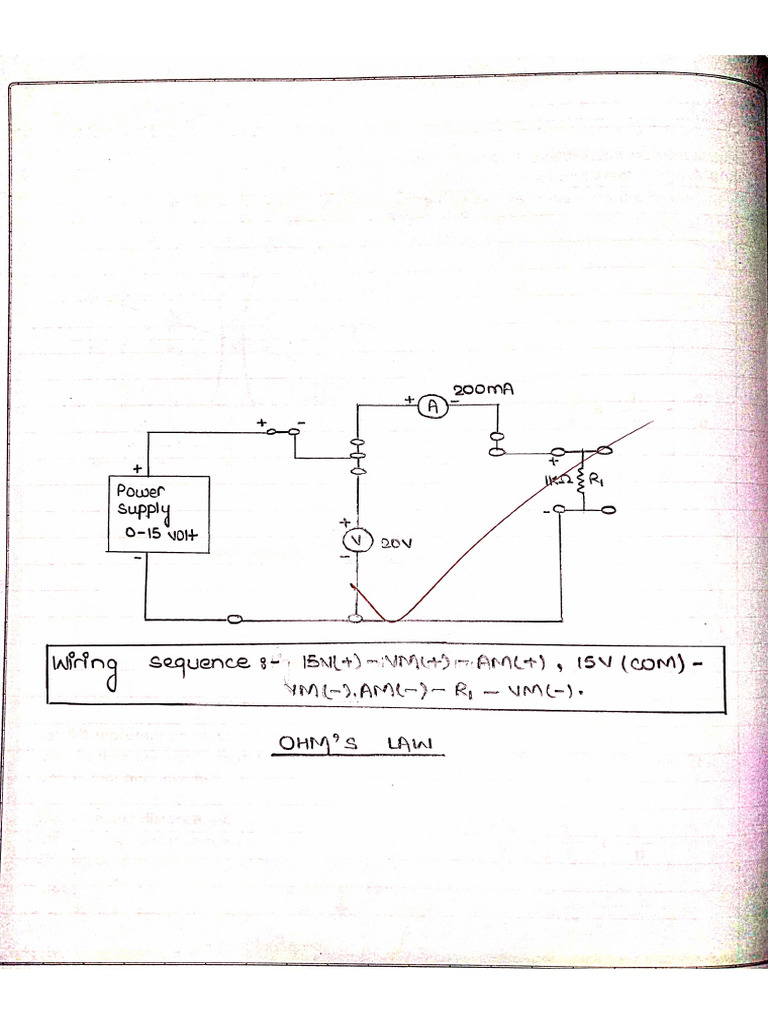 200mA
+ A -
+ -
+
Power
supply
0-15 volt
-
+
1KΩ R1
-
+
V 20V
-
Wiring sequence :- 15V(+) - VM(+) - AM(+), 15V (COM) -
VM(-). AM(-) - R1 - VM(-).
OHM'S LAW